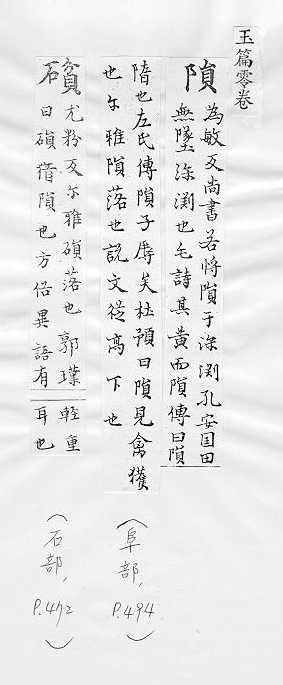 玉篇零卷
隕
為敏反尚書若將隕于深渕孔安国曰
無墜深渕也毛詩其黄而隕傳曰隕
隋也左氏傳隕子辱矣杜預曰隕見禽獲
也尓雅隕落也説文從高下也
(阜部,
P.494)
磒
尤粉反尓雅磒落也郭璞
曰磒猶隕也方俗異語有
輕重
耳也
(石部,
P.472)